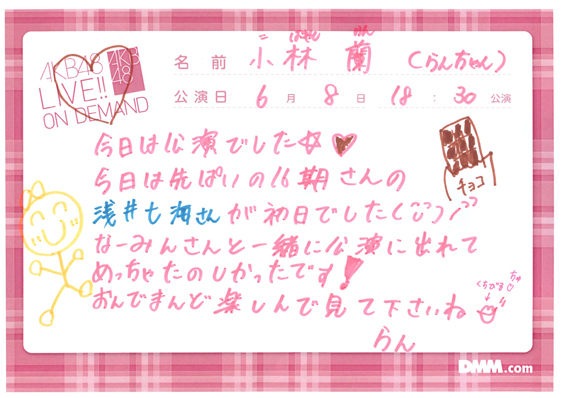 AKB48
LIVE!!
ON DEMAND
AKB
48
こ ばやし らん
名前 小林 蘭 (らんちゃん)
公演日 6月8日 18:30 公演
今日は公演でした☆♥
今日は先ぱいの16期さんの
浅井七海さんが初日でした
なーみんさんと一緒に公演に出れて
めっちゃたのしかったです!
おんでまんど楽しんで見て下さいね
らん
チョコ
DMM.com